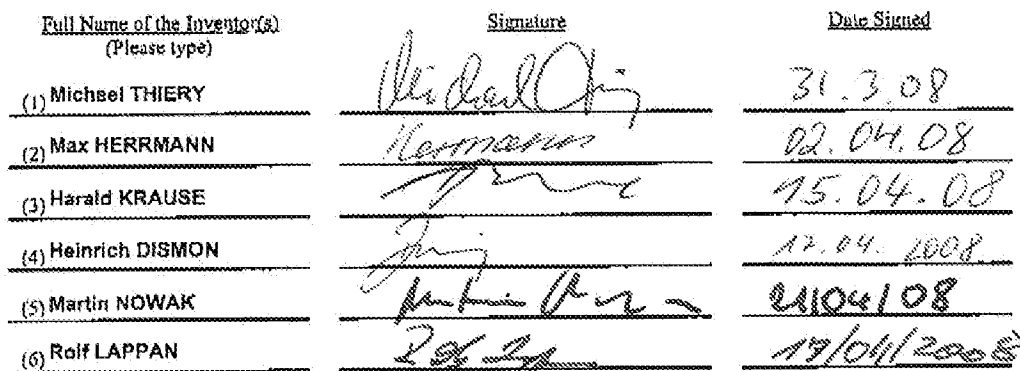 Full Name of the Inventor(s) Signature Date Signed
(Please type)
(1) Michael THIERY Michael 31.3.08
(2) Max HERRMANN Herrmann 02.04.08
(3) Harald KRAUSE 15.04.08
(4) Heinrich DISMON 12.04.2008
(5) Martin NOWAK Martin 21/04/08
(6) Rolf LAPPAN 17/04/2008